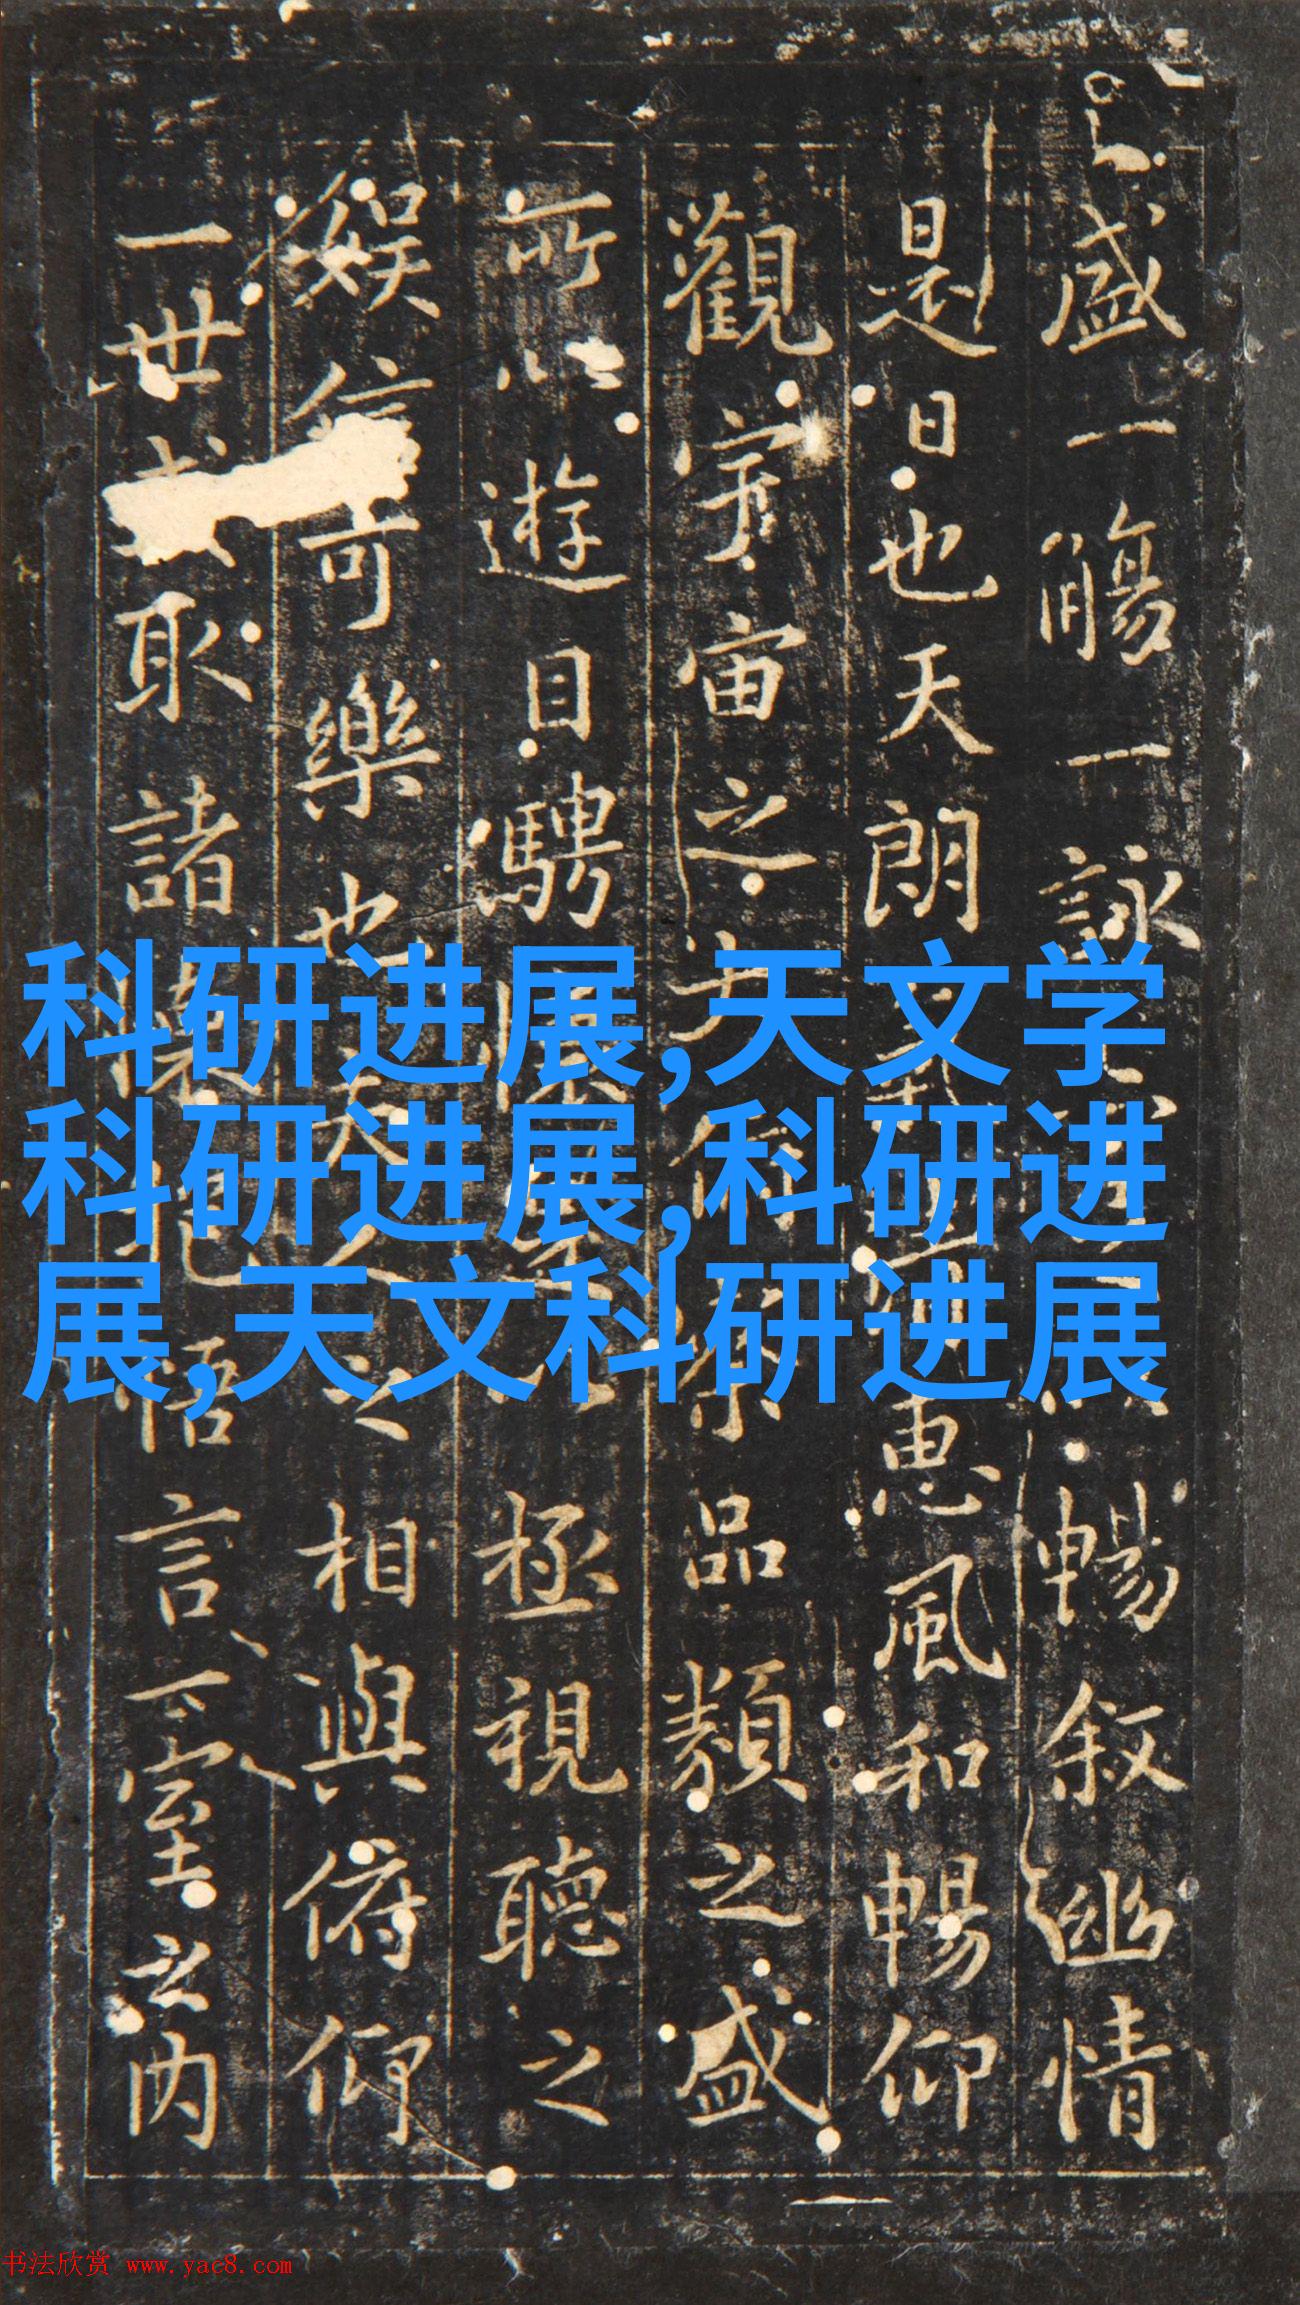 盛一觴一詠暢叙幽情
是日也天朗惠風和暢仰
觀宇宙之品類之盛
所以遊目騁極視聽之
娛信可樂也夫人之相與俯仰
一世取諸悟言一室之内
科研进展,天文学
科研进展,科研进
展,天文科研进展
书法欣赏 www.yac8.com